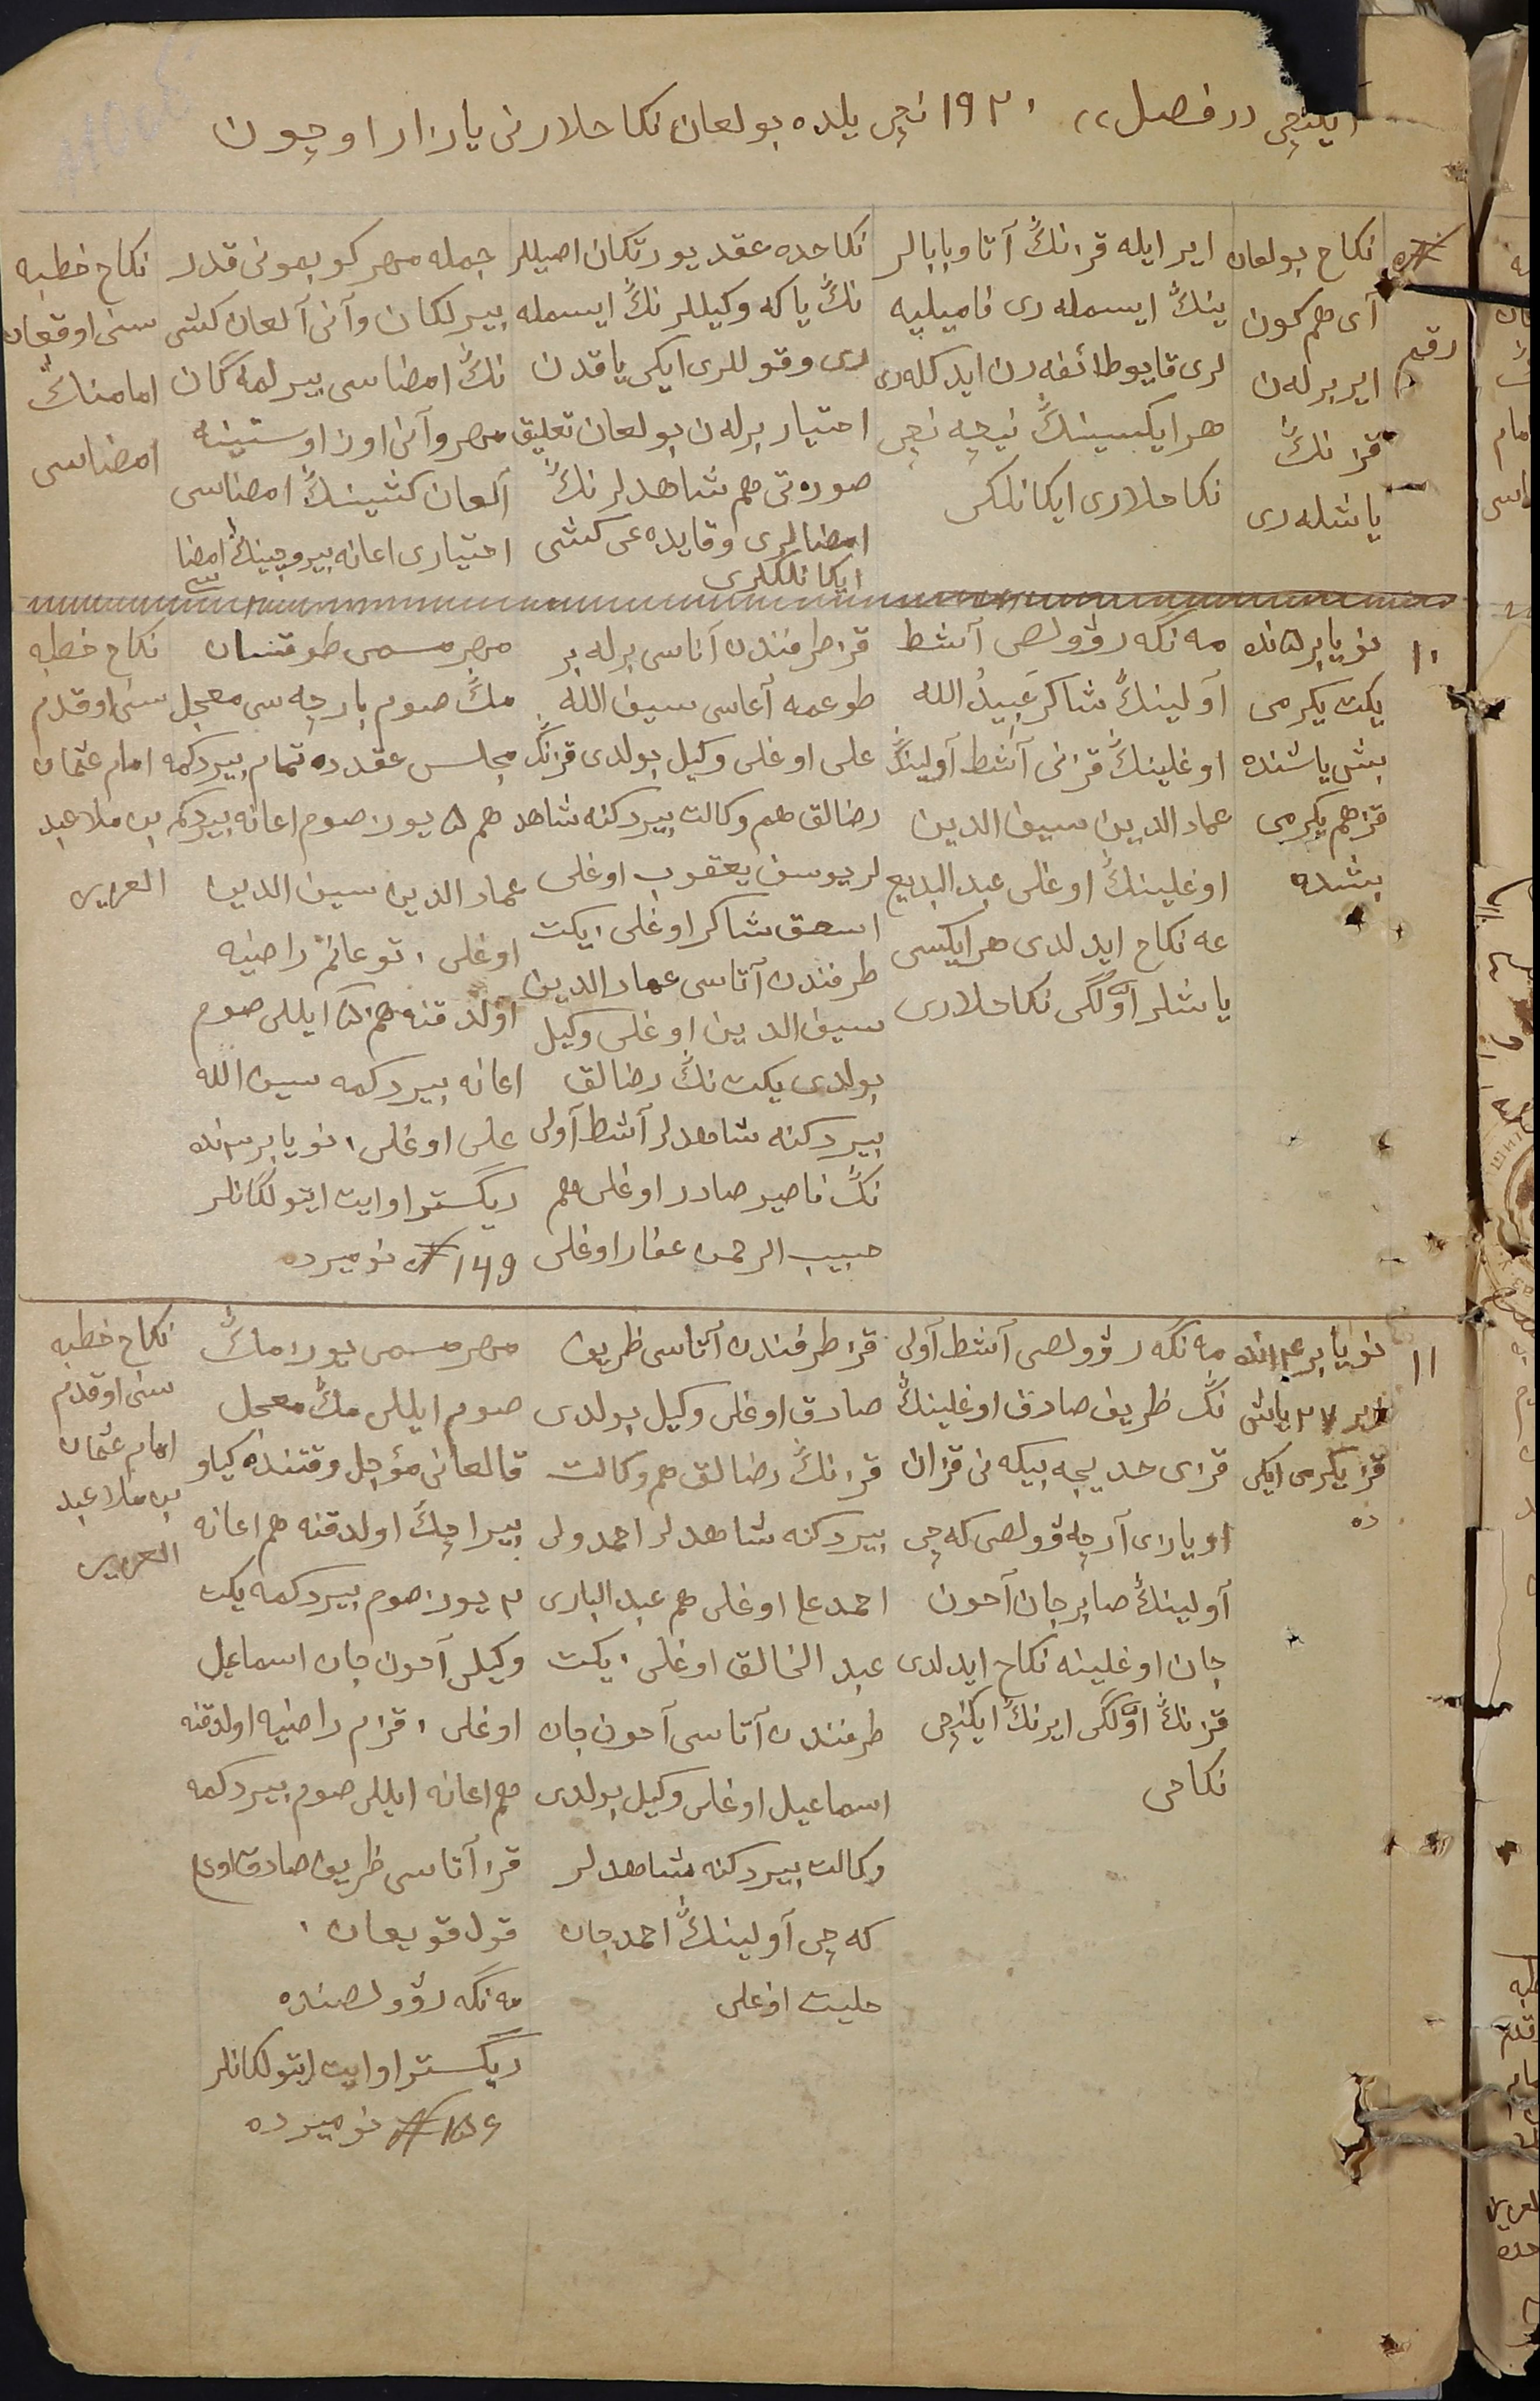 ایکنچی ,,فصل،، ۱۹۲۰ نچی یلده بولعان نکاحلارنی یازار اوچون
№ رقم
نکاح بولعان
آی هم کون
ایر برله‌ن
قزنڭ
یاشله‌ری
ایر ایله قزنڭ آتا و بابالر
ینڭ ایسمله‌ری فامیلیه
لری قایو طائفه‌دن ایدکله‌ری
هر ایکیسینڭ نیچه نچی
نکاحلاری ایکانلکی
نکاحده عقد یورتکان اصیللر
نڭ یاکه وکیللرنڭ ایسمله
ری و قوللری ایکی یاقدن
احتیار برله‌ن بولعان تعلیق
صوره‌تی هم شاهدلرنڭ
امضالری و قایده‌عی کشی
ایکانلکلری
جمله مهر کو بمونی قدر
بیرلکان و آنی آلعان کشی
نڭ امضاسی بیرلمه‌گان
مهر و آنی اوز اوستینه
آلعان کشینڭ امضاسی
احتیاری اعانه بیروچینڭ امضا
سی
نکاح خطبه
سنی اوقعان
امامنڭ
امضاسی
۱۰
نویابر ۵ نده
یکت یکرمی
بش یاشنده
قز هم یکرمی
بشده
مه‌نگه‌ر ۋولصی آشط
آولینڭ شاکر عبیدُ الله
اوغلینڭ قزنی آشط آولینڭ
عماد الدین سیف الدین
اوغلینڭ اوغلی عبد البدیع
عه نکاح ایدلدی هر ایکیسی
یاشلر اوّلگی نکاحلاری
قز طرفندن آتاسی برله بر
طوعمه آعاسی سیف الله
علی اوغلی وکیل بولدی قزنڭ
رضالق هم وکالت بیردکنه شاهد
لر یوسف یعقوب اوغلی
اسحق شاکر اوغلی، یکت
طرفندن آتاسی عماد الدین
سیف الدین اوغلی وکیل
بولدی یکت نڭ رضالق
بیردکنه شاهدلر آشط آولی
نڭ ناصیر صادر اوغلی هم
حبیب الرحمن عفار اوغلی
مهر مسمی طوقسان
مڭ صوم بارچه‌سی معجل
مجلس عقدده تمام بیردکمه
هم ۵ یوز صوم اعانه بیردکم
عماد الدین سیف الدین
اوغلی، توعانم راضیه
اولدقنه هم ایللی صوم
اعانه بیردکمه سیف الله
علی اوغلی، نویابر ۳ نده
ریگستراوایت ایتولگانلر
№ ۱۴۹ نومیرده
نکاح خطبه
سنی اوقدم
امام عثمان
بن ملا عبد
العزیز
۱۱
نویابر ۱۴ نده
ایر ۲۷ یاش
قز یکرمی ایکی
ده
مه‌نگه‌ر ۋولصی آشط آولی
نڭ ظریف صادق اوغلینڭ
قزی حدیجه بیکه‌نی قزان
اویازی آرچه ۋولصی که‌چی
آولینڭ صابرجان آحون
جان اوغلینه نکاح ایدلدی
قزنڭ اوّلگی ایرنڭ ایکنچی
نکاحی
قز طرفندن آتاسی ظریف
صادق اوغلی وکیل بولدی
قزنڭ رضالق هم وکالت
بیردکنه شاهدلر احمدولی
احمدعا اوغلی هم عبد الباری
عبد الخالق اوغلی، یکت
طرفندن آتاسی آحون جان
اسماعیل اوغلی وکیل بولدی
وکالت بیردکنه شاهدلر
که‌چی آولینڭ احمدجان
حلیت اوغلی
مهر مسمی یوز مڭ
صوم ایللی مڭ معجل
قالعانی مؤجل وقتنده کیاو
بیراچڭ اولدقنه هم اعانه
۳ یوز صوم بیردکمه یکت
وکیلی آحون جان اسماعیل
اوغلی، قزم راضیه اولدقنه
هم اعانه ایللی صوم بیردکمه
قز آتاسی ظریف صادق اوغ
قول قویعان،
مه‌نگه‌ر ۋولصنده
ریگستراوایت ایتولکانلر
№ ۱۵۶ نومیرده
نکاح خطبه
سنی اوقدم
امام عثمان
بن ملا عبد
العزیز